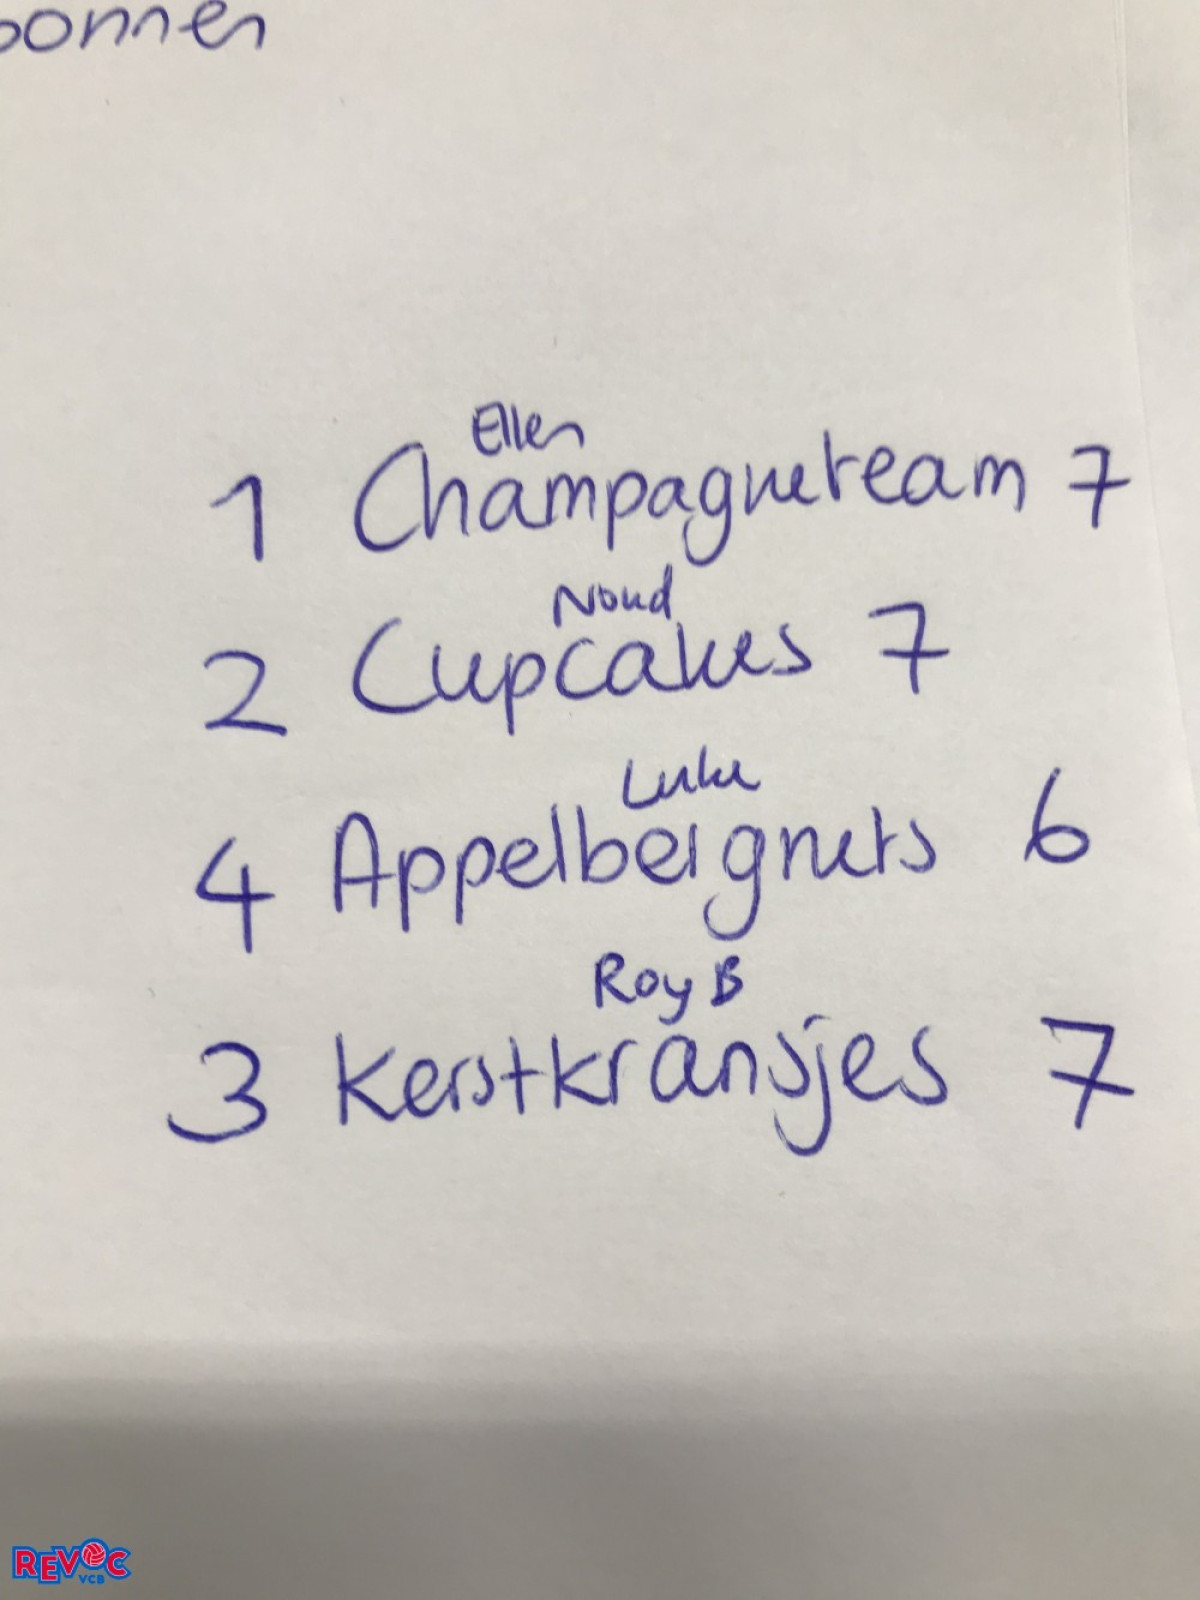 Ellen
1 Champagneteam 7
Noud
2 Cupcakes 7
4 Appelbeignets 6
Roy B
3 Kerstkransjes 7
REVOC
VCB